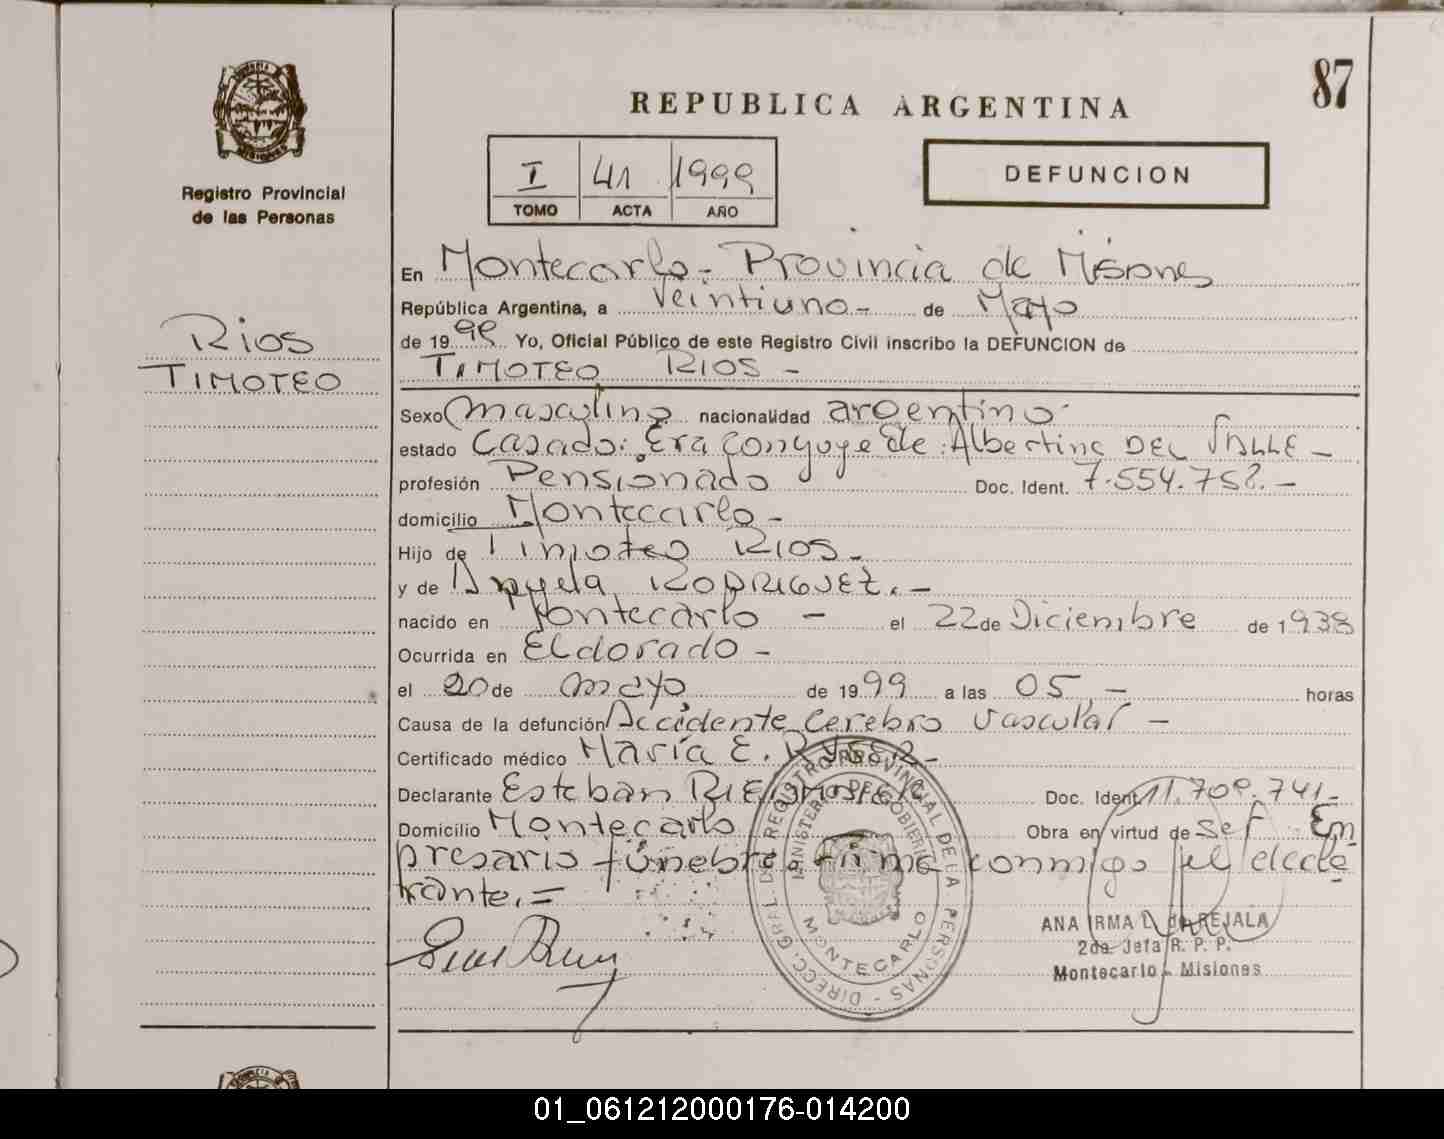 87
REPUBLICA ARGENTINA
Registro Provincial
de las Personas
I 41 1999
TOMO ACTA AÑO
DEFUNCION
RIOS
TIMOTEO
En Montecarlo - Provincia de Misiones
República Argentina, a Veintiuno - de Mayo
de 19 99 Yo, Oficial Público de este Registro Civil inscribo la DEFUNCION de
TIMOTEO RIOS -
Sexo masculino nacionalidad argentino
estado Casado: Era conyuge de Albertina DEL VALLE -
profesión Pensionado Doc. Ident. 7.554.752. -
domicilio Montecarlo -
Hijo de Timoteo RIOS -
y de Angela RODRIGUEZ. -
nacido en Montecarlo - el 22 de Diciembre de 1938
Ocurrida en Eldorado -
el 20 de mayo de 1999 a las 05 - horas
Causa de la defunción Accidente Cerebro Vascular -
Certificado médico María E.
Declarante Esteban Doc. Ident. 11.709.741 -
Domicilio Montecarlo Obra en virtud de ser Em
presario fúnebre. firma conmigo el decla
rante. =
ANA IRMA L. de REJALA
2da. Jefa R. P. P.
Montecarlo - Misiones
DIRECC. GRAL. DE REGISTRO PROVINCIAL DE LA PERSONAS
MINISTERIO DE GOBIERNO
MONTECARLO
MISIONES
01_061212000176-014200